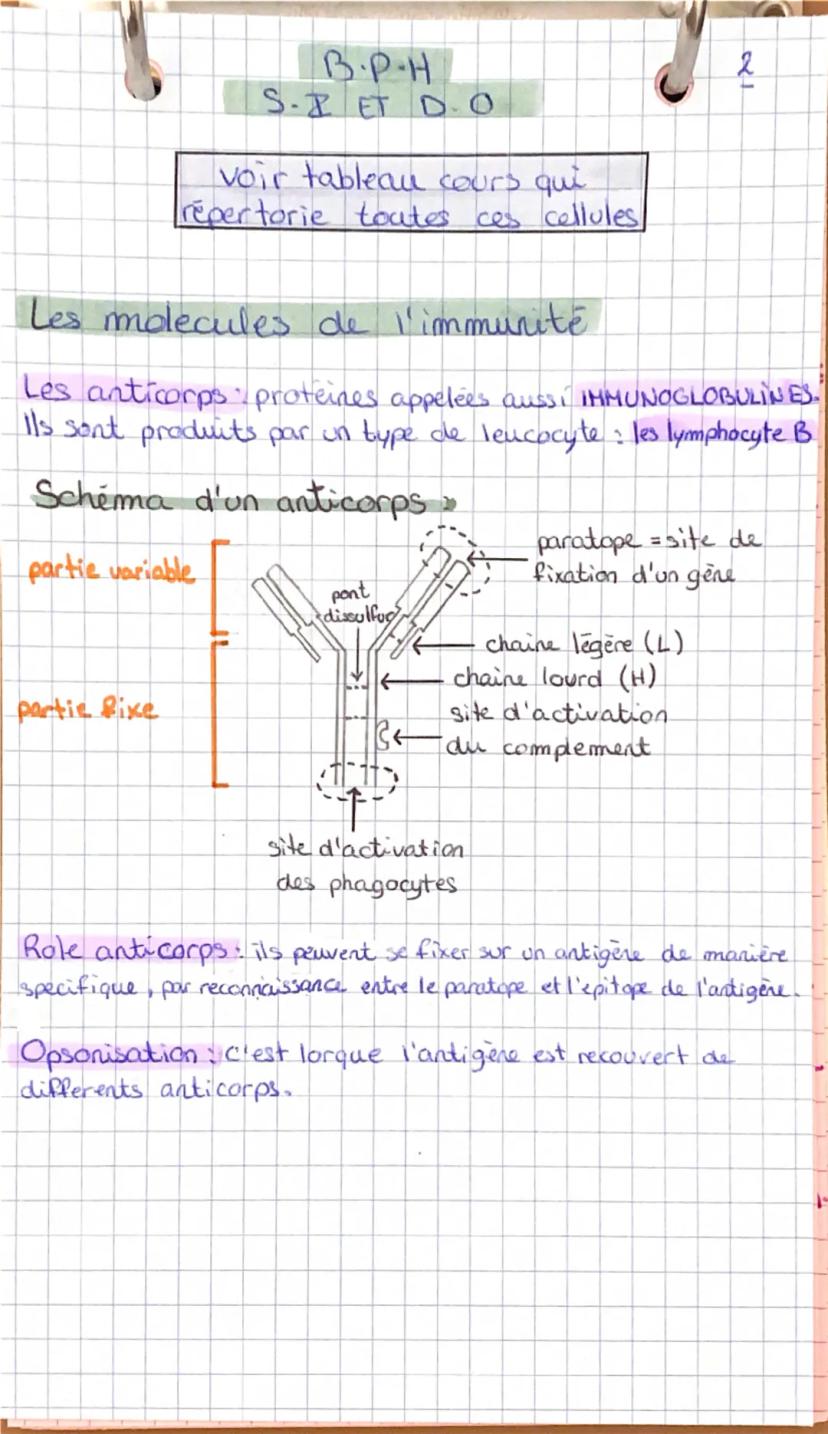 B.P.H
2
S.I ET D.O
voir tableau cours qui
répertorie toutes ces cellules
Les molecules de l'immunité
Les anticorps : protéines appelées aussi IMMUNOGLOBULINES.
Ils sont produits par un type de leucocyte : les lymphocyte B
Schéma d'un anticorps :
partie variable
pont
dissulfue
paratope = site de
fixation d'un gène
chaine légère (L)
chaine lourd (H)
partie fixe
site d'activation
du complement
site d'activation
des phagocytes
Role anticorps : ils peuvent se fixer sur un antigène de manière
specifique, par reconnaissance entre le paratope et l'epitope de l'antigène.
Opsonisation : c'est lorque l'antigène est recouvert de
differents anticorps.